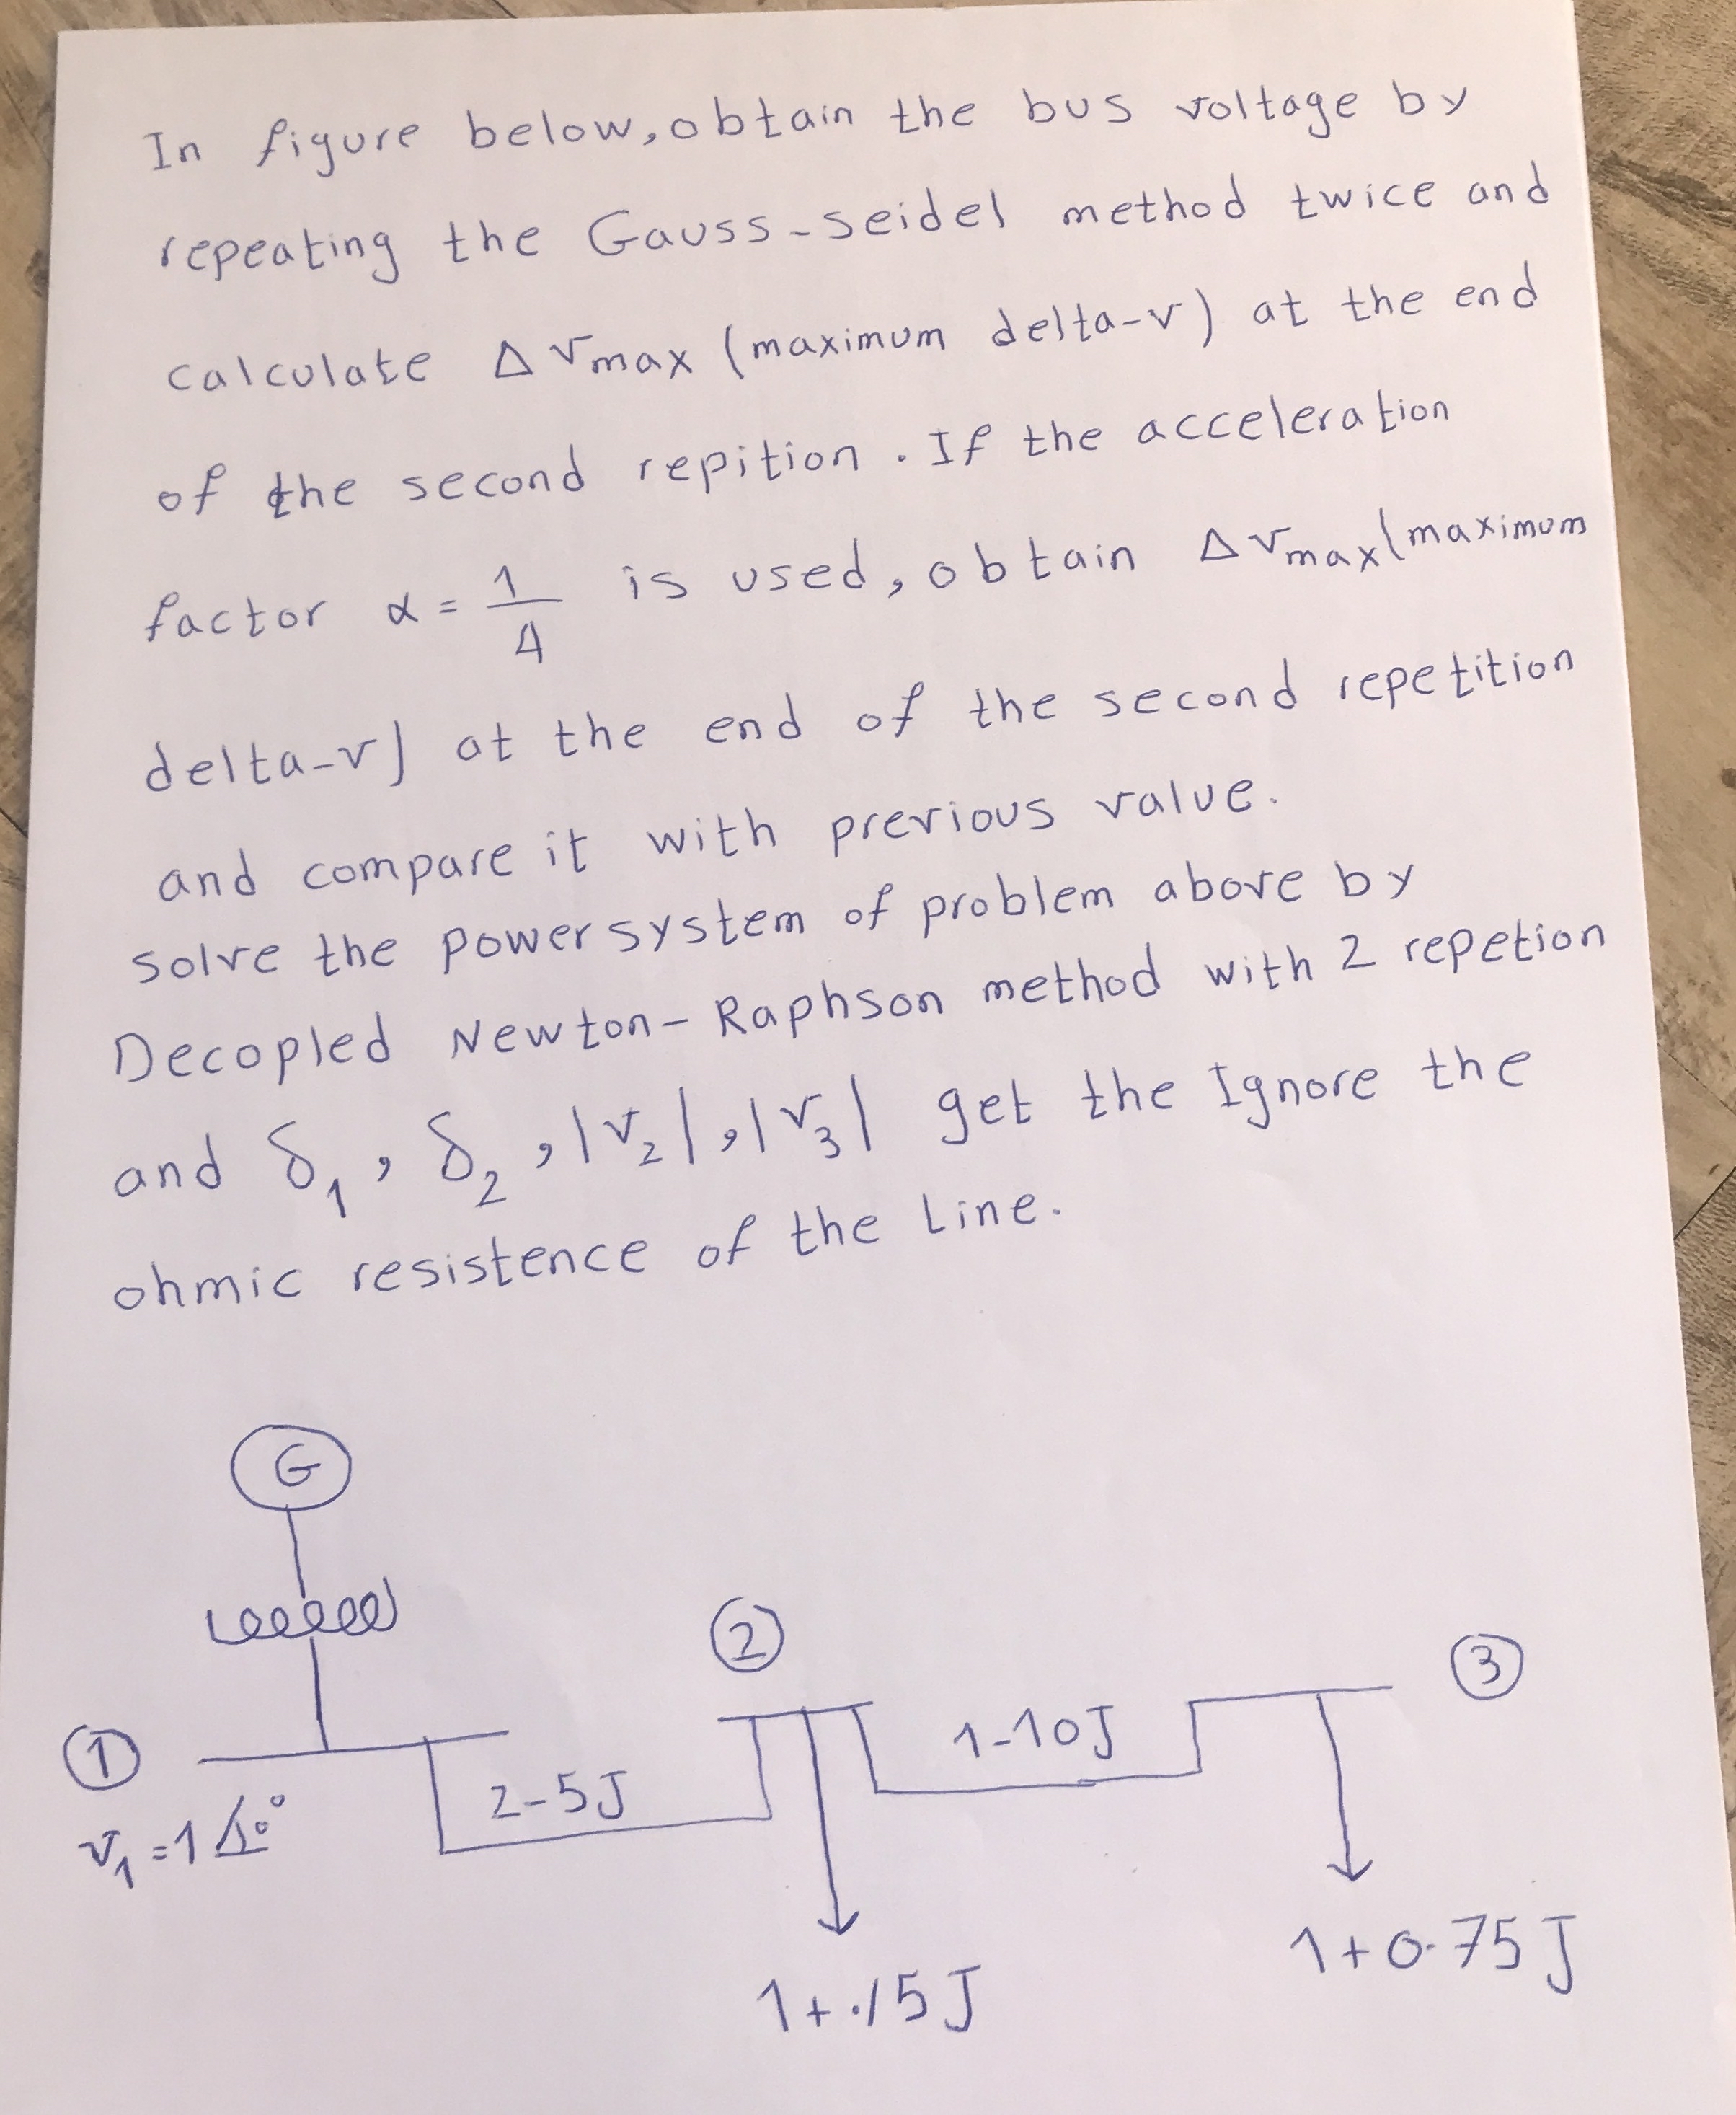 In figure below, obtain the bus voltage by
repeating the Gauss-seidel method twice and
calculate Δ vmax (maximum delta-v) at the end
of the second repition. If the acceleration
factor α = 1/4 is used, obtain Δ vmax (maximum
delta-v) at the end of the second repetition
and compare it with previous value.
solve the power system of problem above by
Decopled Newton-Raphson method with 2 repetion
and δ1, δ2, |v2|, |v3| get the Ignore the
ohmic resistence of the Line.
G
2
3
1
1-10J
2-5J
v1 = 1∠0°
1+0.75J
1+./5J